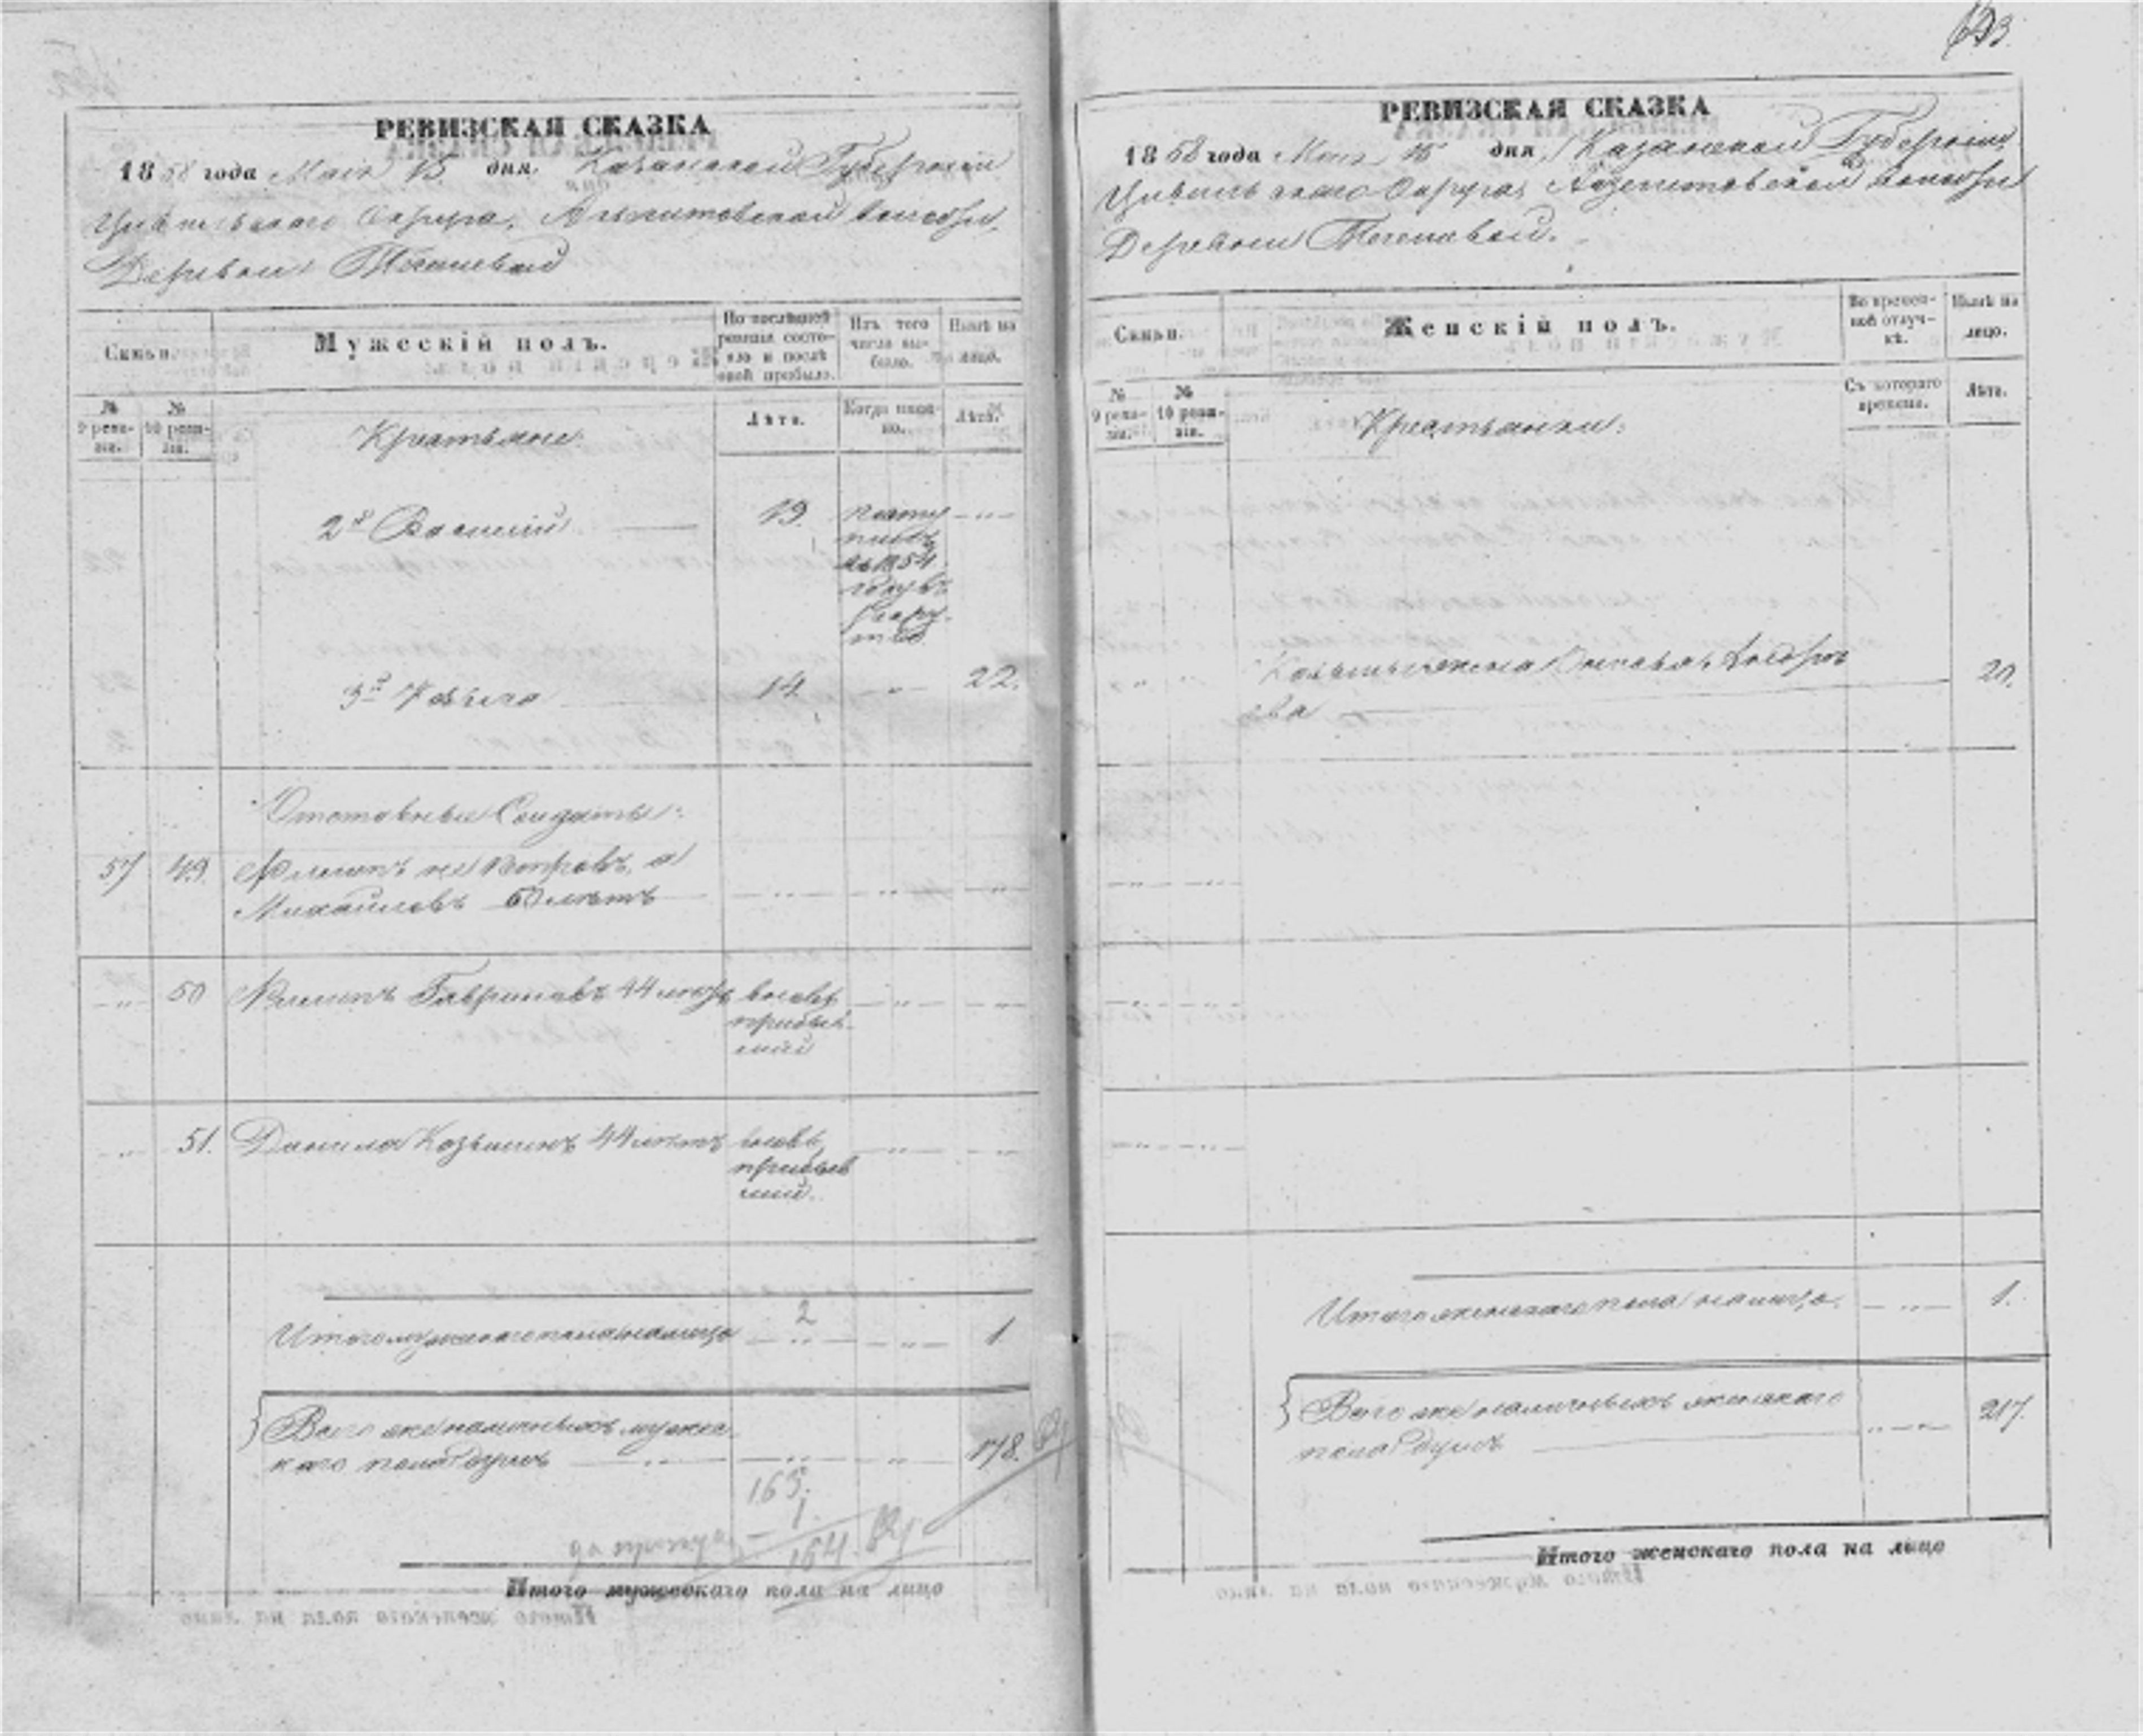 РЕВИЗСКАЯ СКАЗКА
1858 года Мая 15 дня, Казанской Губернии
Цивильскаго Округа, волости,
Деревни
Семьи.
Мужескій полъ.
По послѣдней ревизіи состояло и послѣ оной прибыло.
Изъ того числа выбыло.
Нынѣ на лицо.
№ 9 ревизіи.
№ 10 ревизіи.
Крестьяне:
Лѣта.
Когда именно.
Лѣта.
2й Василий 19.
въ 1854
году въ
рекруты
3й 14 " 22.
Отставные Солдаты:
57 49. Филипъ не Петровъ, а
Михайловъ 60 лѣтъ
" 50 Филипъ Гавриловъ 44 лѣтъ вновь
прибыв
шій
" 51. Данила Козьминъ 44 лѣтъ вновь
прибыв
шій.
2
Итого мужескаго пола на лицо " " 1
Всего же наличныхъ мужес
каго пола душъ " " " 178.
165.
1.
164.
Итого мужескаго пола на лицо
РЕВИЗСКАЯ СКАЗКА
1858 года Мая 15 дня, Казанской Губерніи
Цивильскаго Округа, волости
Деревни
Семьи.
Женскій полъ.
Во временной отлучкѣ.
Нынѣ на лицо.
№ 9 ревизіи.
№ 10 ревизіи.
Крестьянки:
Съ котораго времени.
Лѣта.
" " жена Федоро
ва 20.
Итого женскаго пола на лицо. " 1.
Всего же наличныхъ женскаго
пола душъ " 217.
Итого женскаго пола на лицо